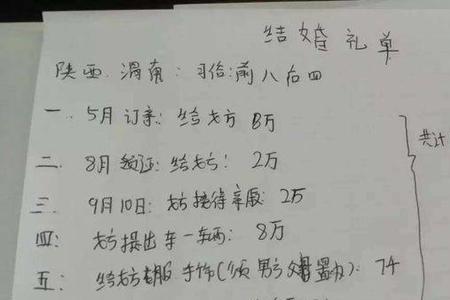 结婚礼单
陕西渭南：习俗：前八后四
一、5月订亲：给女方 8万
二、8月领证：给女方：2万
三、9月10日：女方接待辛服：2万
四：女方提出车一辆：8万
五：给女方 手饰（须男方父母置办）：7
共计